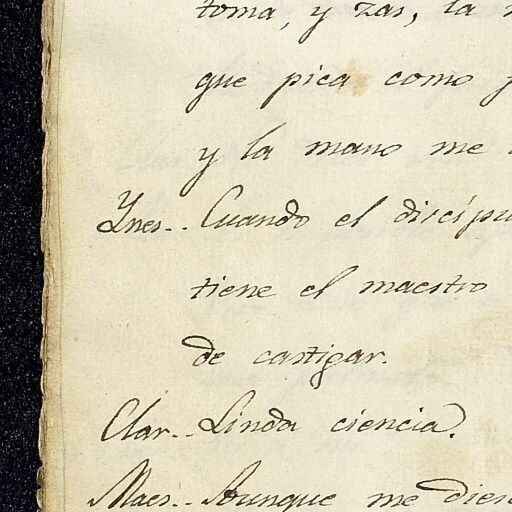 toma, y zas, la
que pica como
y la mano me
Ynes.. Cuando el discípu
tiene el maestro
de castigar.
Clar.. Linda ciencia.
Maes.. Aunque me dies